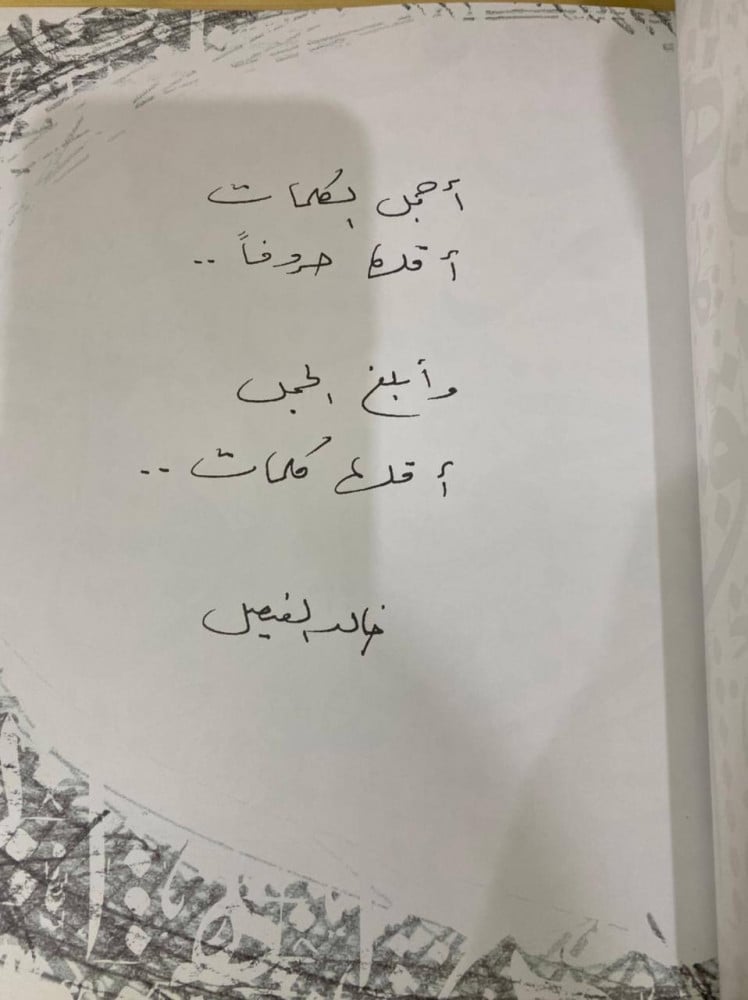 أجمل الكلمات
أقلها حروفاً ..
وأبلغ الجمل
أقلها كلمات ..
خالد الفيصل